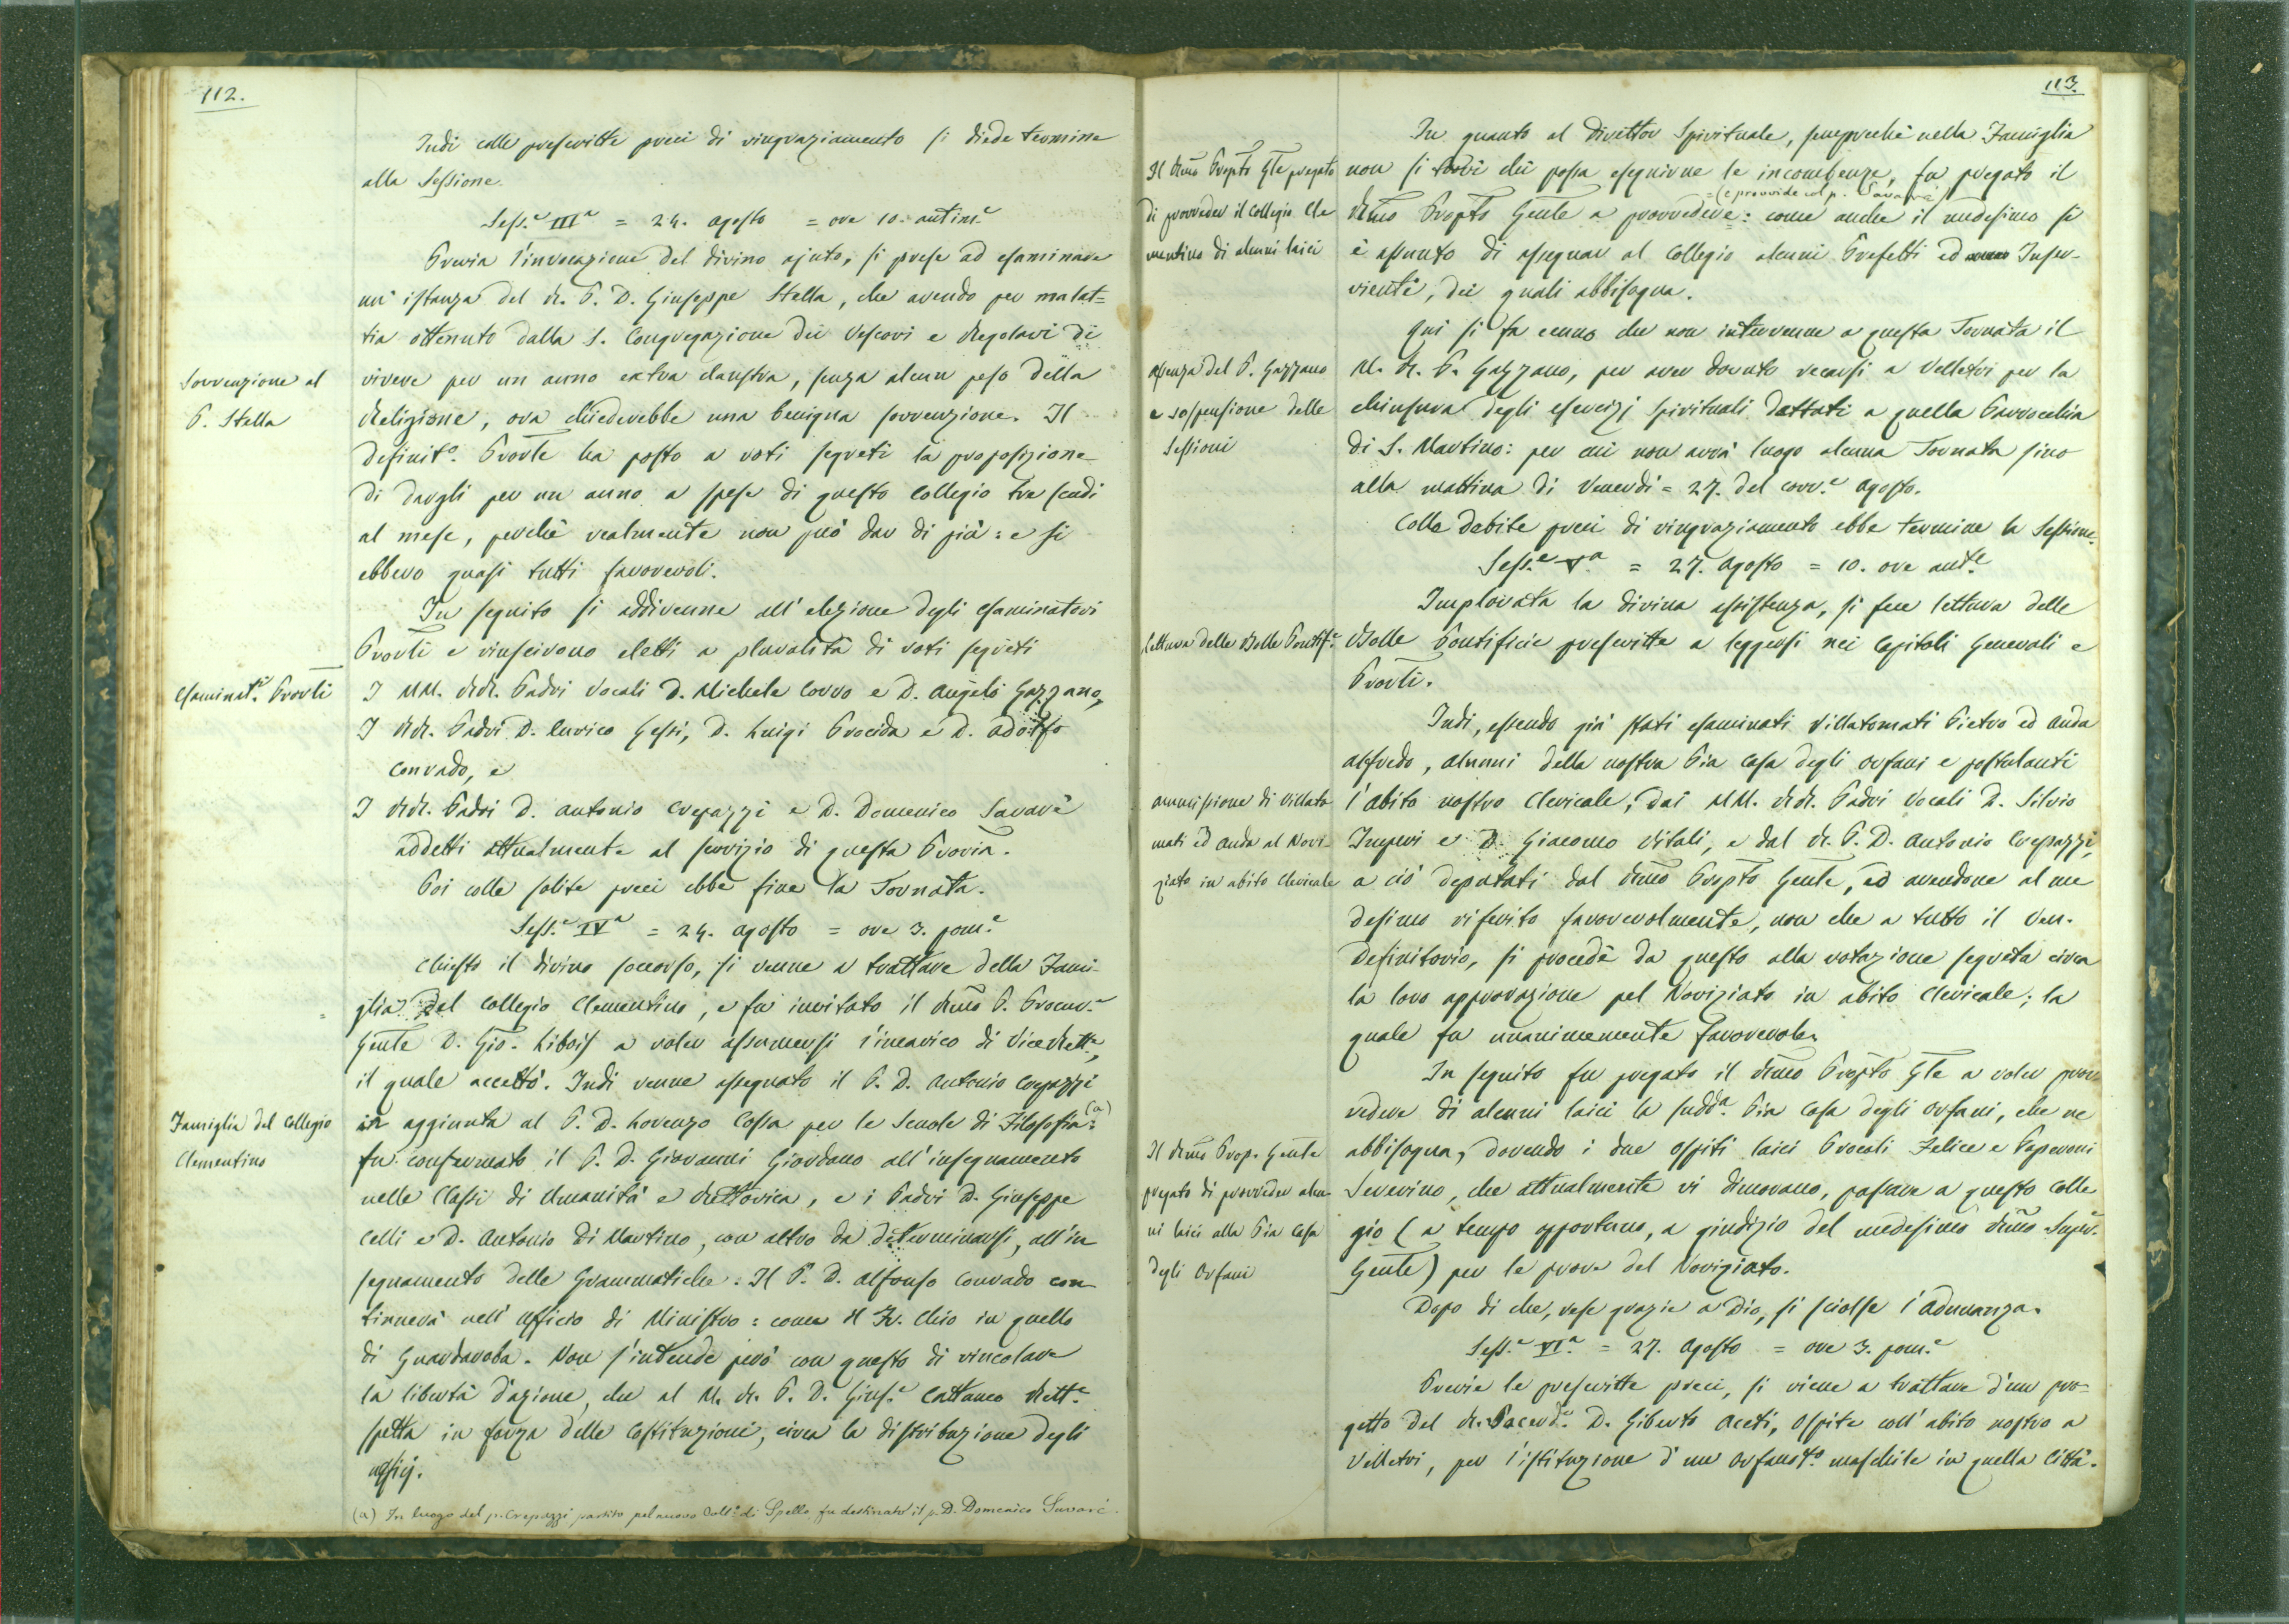 112.
Indi colle prescritte preci di ringraziamento si diede termine
alla Sessione.
Sess.e IIIa = 24. Agosto = ore 10. antim.e
Previa l'invocazione del divino ajuto, si prese ad esaminare
un'istanza del R. P. D. Giuseppe Stella, che avendo per malat=
tia ottenuto dalla S. Congregazione dei Vescovi e Regolari di
Sovvenzione al
P. Stella
vivere per un anno extra claustra, senza alcun peso della
Religione, ora chiederebbe una benigna sovvenzione. Il
Definit.o Provle ha posto a voti segreti la proposizione
di dargli per un anno a spese di questo Collegio tre scudi
al mese, perchè realmente non può dar di più: e si
ebbero quasi tutti favorevoli.
In seguito si addivenne all'elezione degli esaminatori
Provli e riuscirono eletti a pluralità di voti segreti
Esaminat.i Provli
I MM. RR. Padri Vocali D. Michele Corvo e D. Angelo Gazzano,
I RR. Padri D. Enrico Gessi, D. Luigi Procida e D. Adolfo
Conrado, e
I RR. Padri D. Antonio Crepazzi e D. Domenico Savarè
addetti attualmente al servizio di questa Provia.
Poi colle solite preci ebbe fine la Tornata.
Sess.e IVa = 24. Agosto = ore 3. pom.e
Chiesto il divino soccorso, si venne a trattare della Fami-
glia del Collegio Clementino, e fu invitato il Rmo P. Procur.e
Genle D. Gio. Libois a voler assumersi l'incarico di Vicerett.e,
il quale accettò. Indi venne assegnato il P. D. Antonio Crepazzi
Famiglia del Collegio
Clementino
in aggiunta al P. D. Lorenzo Cossa per le Scuole di Filosofia (a):
fu confermato il P. D. Giovanni Giordano all'insegnamento
nelle Classi di Umanità e Rettorica, e i Padri D. Giuseppe
Celli e D. Antonio Di Martino, con altro da determinarsi, all'in
segnamento delle Grammatiche. Il P. D. Alfonso Conrado con
tinuerà nell'Ufficio di Ministro: come il Fr. Chio in quello
di Guardaroba. Non s'intende però con questo di vincolare
la libertà d'azione, che al M. R. P. D. Gius.e Cattaneo Rett.e
spetta in forza delle Costituzioni, circa la distribuzione degli
uffizj.
(a) In luogo del p. Crepazzi partito pel nuovo Coll.o di Spello fu destinato il p. D. Domenico Savarè.
113.
In quanto al Direttor Spirituale, semprechè nella Famiglia
Il Rmo Prepto Gle pregato
di provveder il Collegio Cle
mentino di alcuni laici
non si trovi chi possa eseguirne le incombenze, fu pregato il
= (e provvide col p. Savarè)
Rmo Prepto Genle a provvedere: come anche il medesimo si
è assunto di assegnar al Collegio alcuni Prefetti ed Inser-
vienti, dei quali abbisogna.
Qui si fa cenno che non intervenne a questa Tornata il
Assenza del P. Gazzano
e sospensione delle
Sessioni
M. R. P. Gazzano, per aver dovuto recarsi a Velletri per la
chiusura degli esercizj spirituali dettati a quella Parrocchia
di S. Martino: per cui non avrà luogo alcuna Tornata sino
alla mattina di Venerdì = 27. del corr.e Agosto.
Colle debite preci di ringraziamento ebbe termine la Sessione.
Sess.e Va = 27. Agosto = 10. ore ant.e
Implorata la divina assistenza, si fece lettura delle
Lettura delle Bolle Pontif.e
Bolle Pontificie prescritte a leggersi nei Capitoli Generali e
Provli.
Indi, essendo già stati esaminati Villatomati Pietro ed Auda
Alfredo, Alunni della nostra Pia Casa degli Orfani e postulanti
Ammissione di Villato
mati ed Auda al Novi-
ziato in abito Clericale
l'abito nostro Clericale, dai MM. RR. Padri Vocali D. Silvio
Imperi e D. Giacomo Vitali, e dal R. P. D. Antonio Crepazzi,
a ciò deputati dal Rmo Prepto Genle, ed avendone al me
desimo riferito favorevolmente, non che a tutto il Ven.
Definitorio, si procedè da questo alla votazione segreta circa
la loro approvazione pel Noviziato in abito Clericale; la
quale fu unanimemente favorevole.
In seguito fu pregato il Rmo Prepto Gle a voler prov
vedere di alcuni laici la sudd.a Pia Casa degli Orfani, che ne
Il Rmo Prep. Genle
pregato di provveder alcu
ni laici alla Pia Casa
degli Orfani
abbisogna, dovendo i due Ospiti laici Procoli Felice e Peperoni
Severino, che attualmente vi dimorano, passare a questo Colle
gio (a tempo opportuno, a giudizio del medesimo Rmo Super.
Genle) per le prove del Noviziato.
Dopo di che, rese grazie a Dio, si sciolse l'Adunanza.
Sess.e VIa = 27. Agosto = ore 3. pom.e
Previe le prescritte preci, si viene a trattare d'un pro=
getto del R. Sacerd.e D. Giberto Aceti, Ospite coll'abito nostro a
Velletri, per l'istituzione d'un Orfanot.o maschile in quella Città.